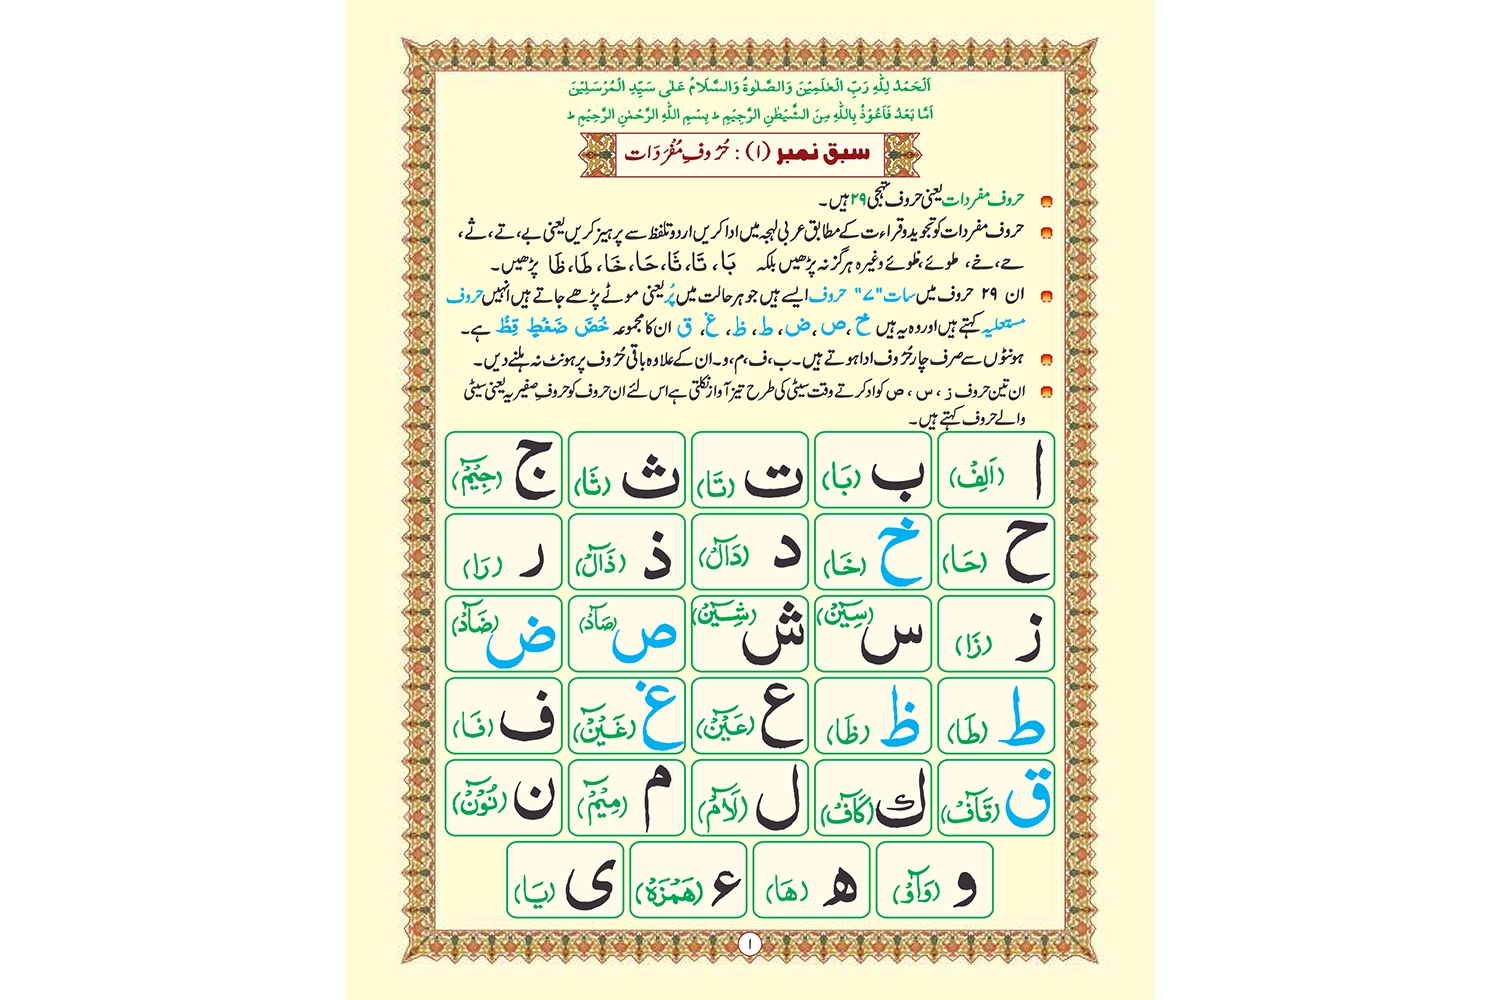 اَلْحَمْدُ لِلّٰهِ رَبِّ الْعٰلَمِيْنَ وَالصَّلٰوةُ وَالسَّلَامُ عَلٰى سَيِّدِ الْمُرْسَلِيْنَ
اَمَّا بَعْدُ فَاَعُوْذُ بِاللّٰهِ مِنَ الشَّيْطٰنِ الرَّجِيْمِ ط بِسْمِ اللّٰهِ الرَّحْمٰنِ الرَّحِيْمِ ط
سبق نمبر (۱) : حُرُوفِ مُفْرَدَات
حروف مفردات یعنی حروف تہجی ۲۹ ہیں۔
حروف مفردات کو تجوید و قراءت کے مطابق عربی لہجہ میں ادا کریں اردو تلفظ سے پرہیز کریں یعنی بے، تے، ثے،
حے، خے، طوئے، ظوئے وغیرہ ہرگز نہ پڑھیں بلکہ بَا، تَا، ثَا، حَا، خَا، طَا، ظَا پڑھیں۔
ان ۲۹ حروف میں سات "۷" حروف ایسے ہیں جو ہر حالت میں پُر یعنی موٹے پڑھے جاتے ہیں انہیں حروف
مستعلیہ کہتے ہیں اور وہ یہ ہیں خ، ص، ض، ط، ظ، غ، ق ان کا مجموعہ خُصَّ ضَغْطٍ قِظْ ہے۔
ہونٹوں سے صرف چار حُرُوف ادا ہوتے ہیں۔ ب، ف، م، و۔ ان کے علاوہ باقی حُرُوف پر ہونٹ نہ ہلنے دیں۔
ان تین حروف ز، س، ص کو ادا کرتے وقت سیٹی کی طرح تیز آواز نکلتی ہے اس لئے ان حروف کو حروفِ صفیریہ یعنی سیٹی
والے حروف کہتے ہیں۔
ا (اَلِفْ) ب (بَا) ت (تَا) ث (ثَا) ج (جِيْمْ)
ح (حَا) خ (خَا) د (دَالْ) ذ (ذَالْ) ر (رَا)
ز (زَا) س (سِيْنْ) ش (شِيْنْ) ص (صَادْ) ض (ضَادْ)
ط (طَا) ظ (ظَا) ع (عَيْنْ) غ (غَيْنْ) ف (فَا)
ق (قَافْ) ك (كَافْ) ل (لَامْ) م (مِيْمْ) ن (نُوْنْ)
و (وَاوْ) ه (هَا) ء (هَمْزَهْ) ى (يَا)
۱